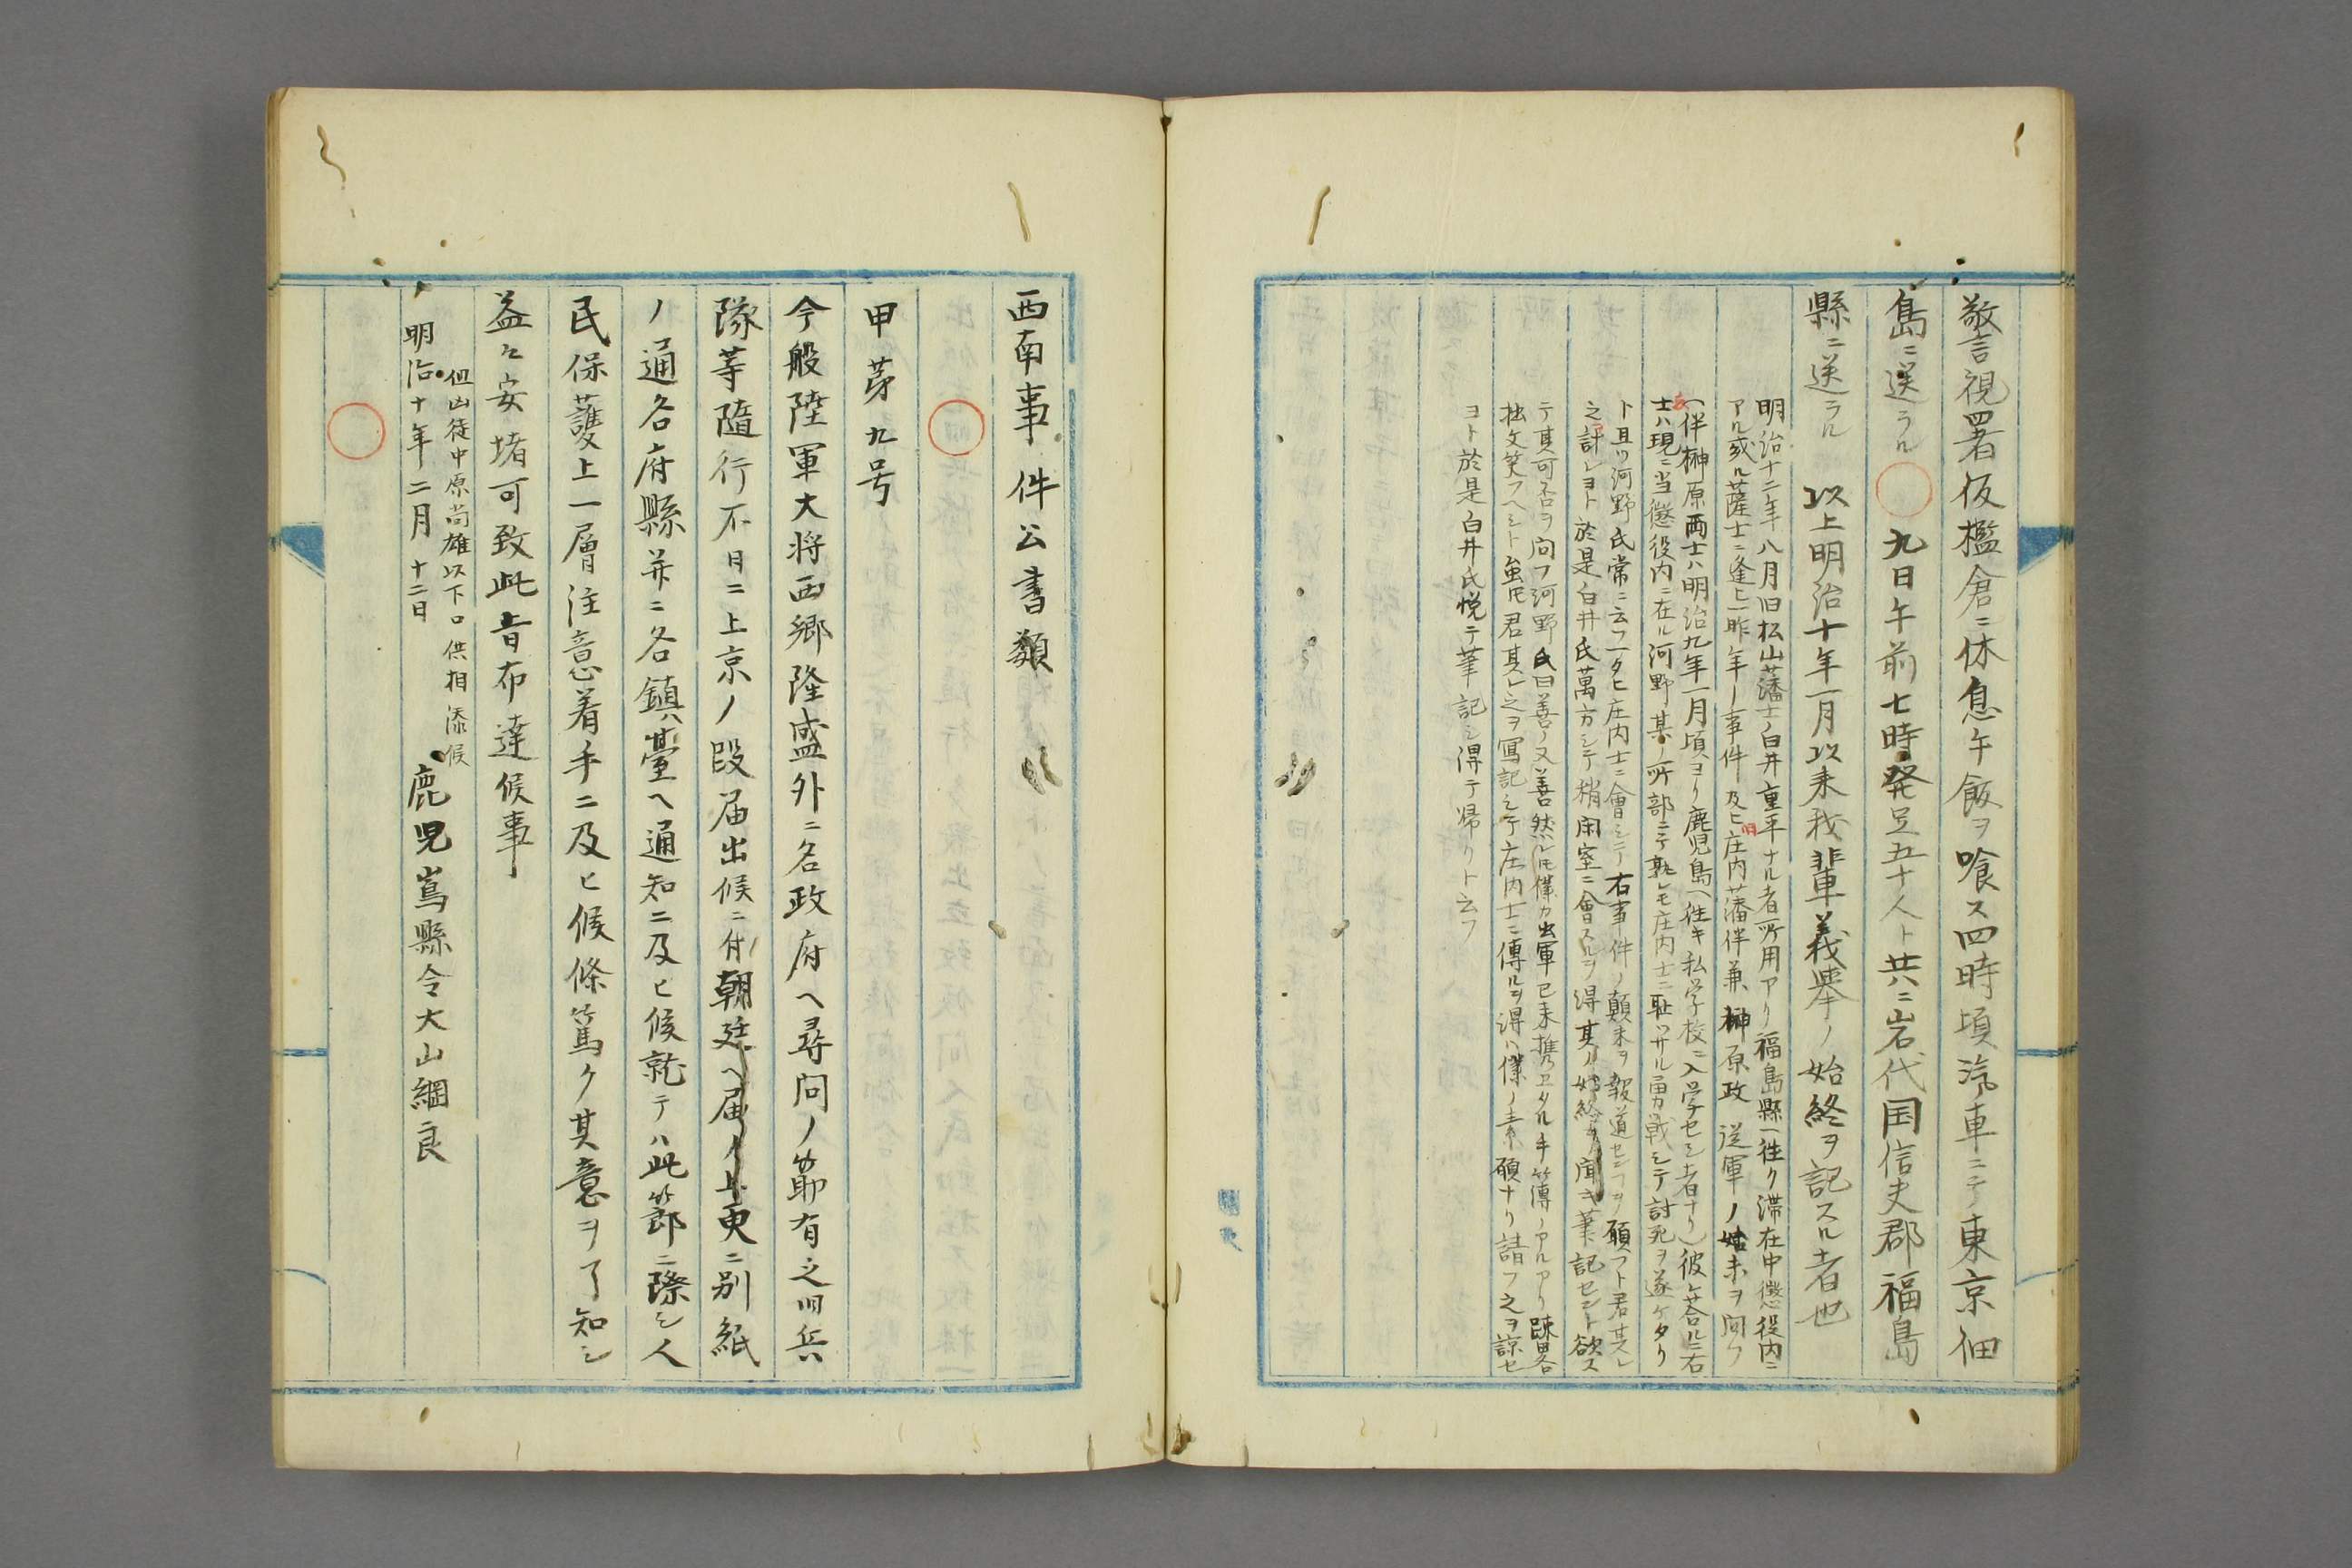 警視署仮檻倉ニ休息午飯ヲ喰ス四時頃汽車ニテ東京佃
島ニ送ラル○九日午前七時発足五十人ト共ニ岩代国信夫郡福島
縣ニ送ラル 以上明治十年一月以来我輩義挙ノ始終ヲ記スル者也
明治十二年八月旧松山藩士白井重平ナル者所用アリ福島縣ヘ往ク滞在中懲役内ニ
アル或ル薩士ニ逢ヒ一昨年ノ事件及ヒ旧庄内藩伴兼榊原政 従軍ノ始末ヲ問フ
(伴榊原両士ハ明治九年一月頃ヨリ鹿児島ヘ往キ私学校ニ入学セシ者ナリ)彼ケ答ルニ右
士ハ現ニ当懲役内ニ在ル河野某ノ所部ニテ孰レモ庄内士ニ耻サル勇戦シテ討死ヲ遂ケタリ
ト且ツ河野氏常ニ云フ一タヒ庄内士ニ會シテ右事件ノ顛末ヲ報道センヿヲ願フト君其レ
之計レヨト於是白井氏萬方シテ稍閑室ニ會スルヲ得其ノ始終ヲ聞キ筆記セント欲ス
テ其可否ヲ問フ河野氏曰善ノ又善然レ𪜈僕カ出軍已来携ヱタル手簿ノアルアリ疎畧
拙文笑フヘシト虽𪜈君其レ之ヲ寫記シテ庄内士ニ傳ルヲ得ハ僕ノ素願ナリ請フ之ヲ諒セ
ヨト於是白井氏悦テ筆記シ得テ帰リト云フ
西南事件公書類
○
甲第九号
今般陸軍大将西郷隆盛外ニ名政府ヘ尋問ノ節有之旧兵
隊等随行不日ニ上京ノ段届出候ニ付朝廷ヘ届ノ上更ニ別紙
ノ通各府縣并ニ各鎮臺ヘ通知ニ及ヒ候就テハ此節ニ際シ人
民保護上一層注意着手ニ及ヒ候條篤ク其意ヲ了知シ
益々安堵可致此旨布達候事
但凶徒中原尚雄以下口供相添候
明治十年二月十二日 鹿児嶌縣令大山綱良
○